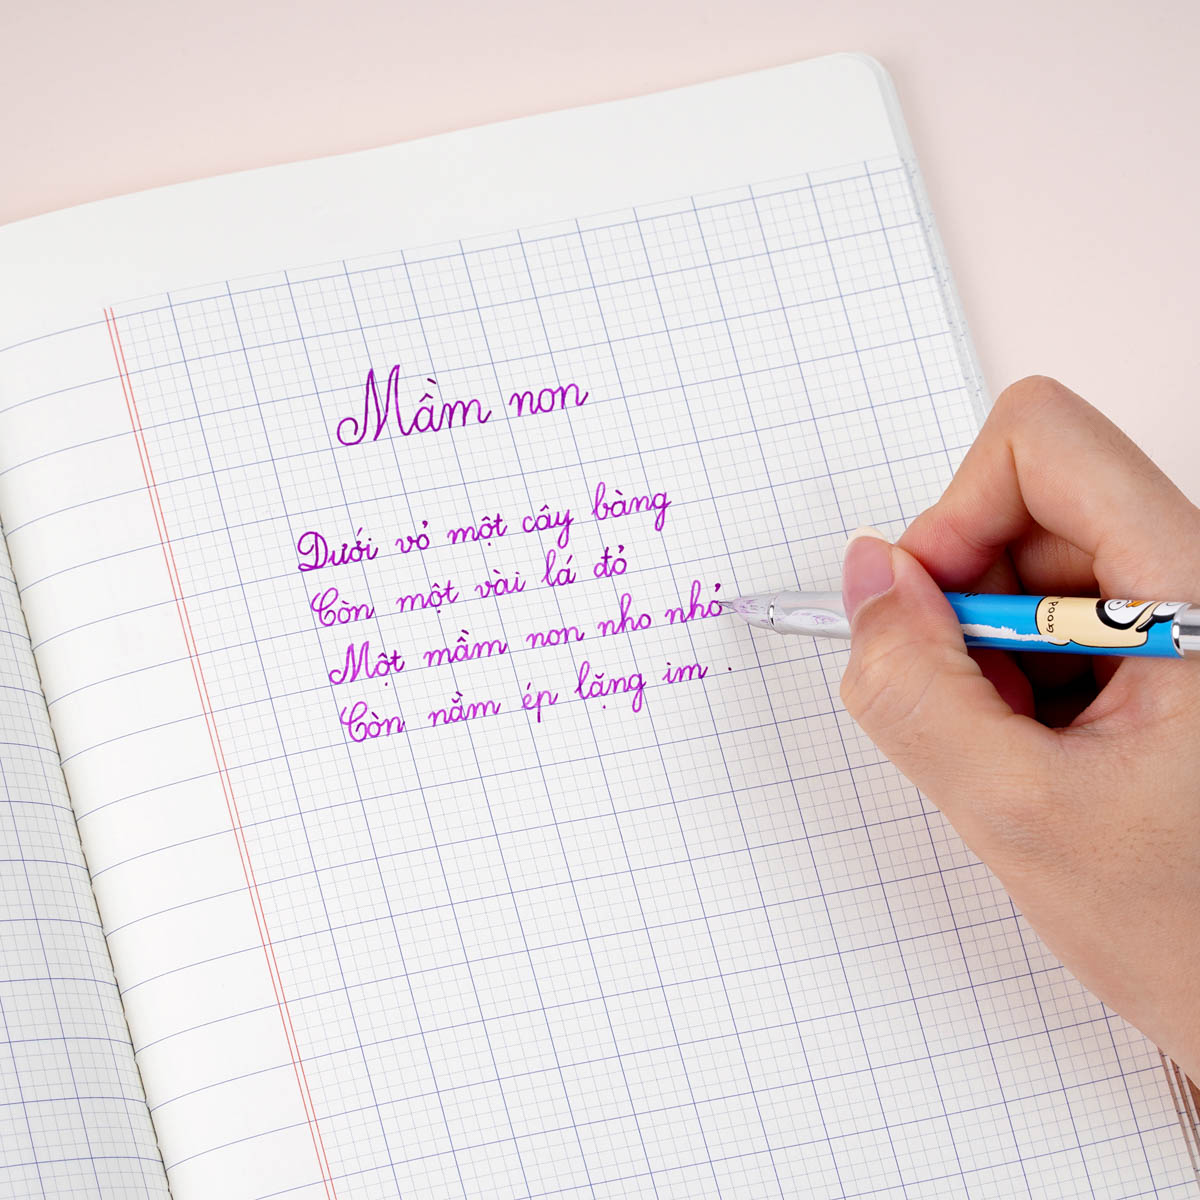 Mầm non
Dưới vỏ một cây bàng
Còn một vài lá đỏ
Một mầm non nho nhỏ
Còn nằm ép lặng im .
GOOD